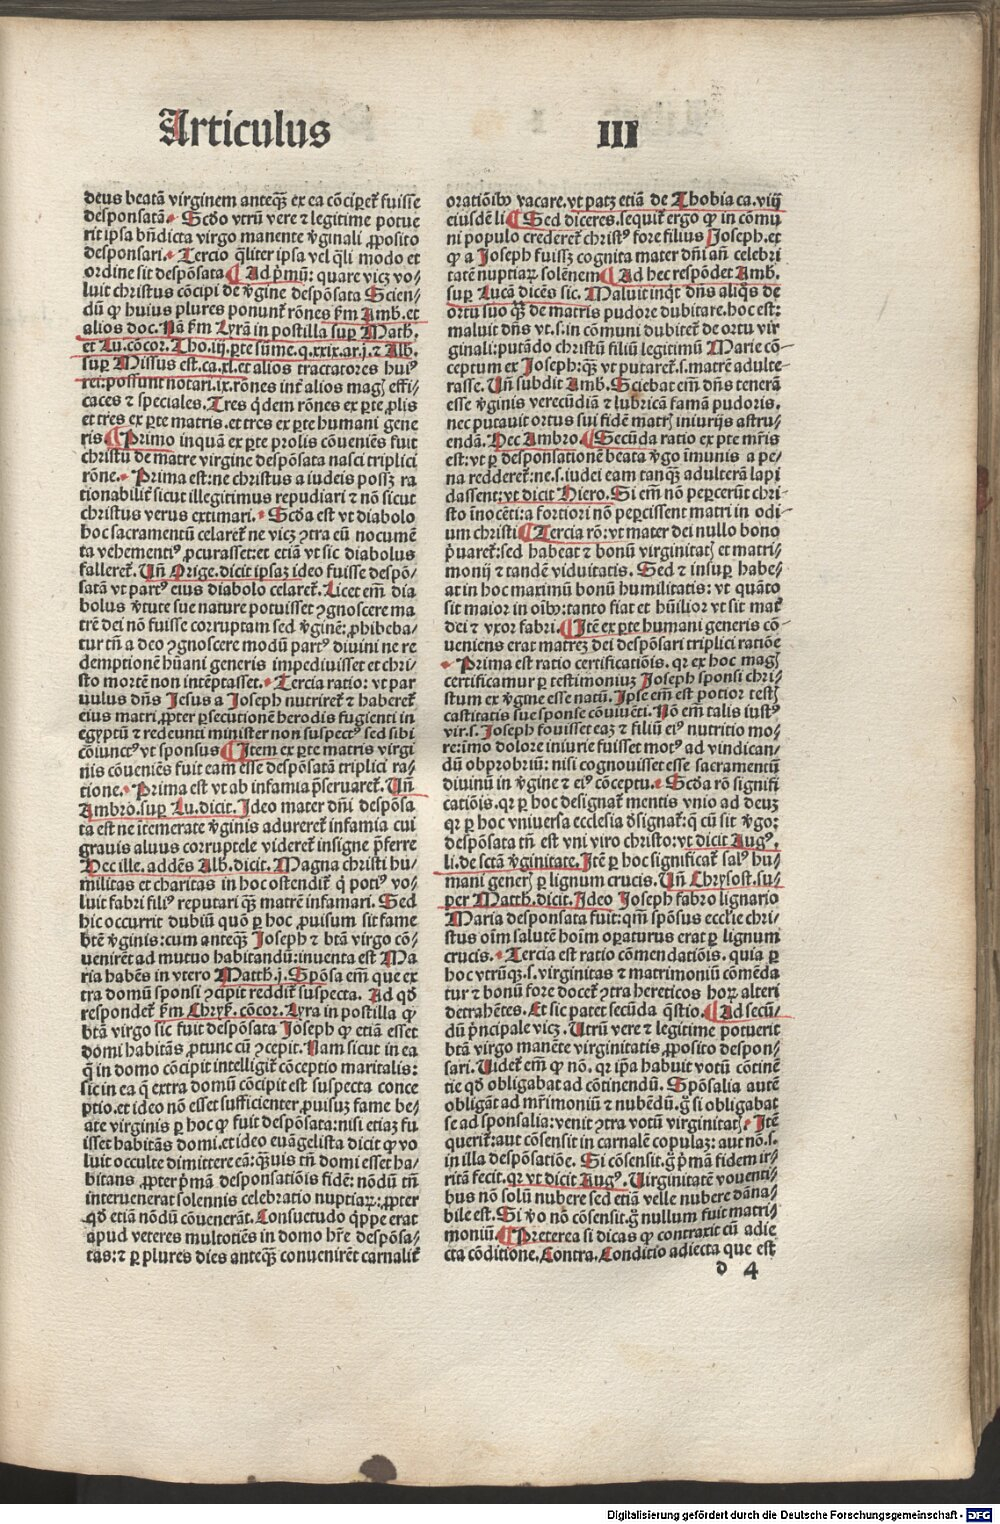 Articulus III
deus beatã virginem anteqꝫ ex ea cõciperet᷑ fuisse
desponsatã. Scđo vtrũ vere ⁊ legitime potue
rit ipsa bñdicta virgo manente ꝟginali ꝓposito
desponsari. Tercio q̃liter ipsa vel q̃li modo et
ordine sit despõsata ¶ Ad pͥmũ: quare vicꝫ vo⸗
luit christus cõcipi de ꝟgine despõsata Scien⸗
dũ ꝙ huius plures ponunt᷑ rõnes ẜm Amb. et
alios doc. Nã ẜm Lyrã in postilla sup Math.
et Lu. cõcor. Tho. iij. ꝑte sũme. q. xxix. ar. j. ⁊ Alb.
sup Missus est. ca. xl. et alios tractatores huiꝰ
rei: possunt notari. ix. rõnes int᷑ alios magꝭ effi⸗
caces ⁊ speciales. Tres q̃dem rõnes ex ꝑte ꝓlis
et tres ex ꝑte matris. et tres ex ꝑte humani gene
ris ¶ Primo inquã ex ꝑte prolis cõueniẽs fuit
christũ de matre virgine despõsata nasci triplici
rõne. Prima est: ne christus a iudeis possꝫ ra
tionabilit᷑ sicut illegitimus repudiari ⁊ nõ sicut
christus verus extimari. Scđa est vt diabolo
hoc sacramentũ celaret᷑ ne vicꝫ ꝯtra eũ nocumẽ
ta vehementiꝰ ꝓcurasset: et etiã vt sic diabolus
falleret᷑. Uñ Orige. dicit ipsaꝫ ideo fuisse despõ⸗
satã vt partꝰ eius diabolo celaret᷑. Licet em̃ dia
bolus ꝟtute sue nature potuisset ꝯgnoscere ma
trẽ dei nõ fuisse corruptam sed ꝟginẽ: ꝓhibeba⸗
tur tñ a deo ꝯgnoscere modũ partꝰ diuini ne re
demptionẽ hũani generis impediuisset et chri⸗
sto mortẽ non intẽptasset. Tercia ratio: vt par
uulus dñs Jesus a Joseph nutriret᷑ ⁊ haberet᷑
eius matri ꝓpter ꝑsecutionẽ herodis fugienti in
egyptũ ⁊ redeunti minister non suspectꝰ sed sibi
cõiunctꝰ vt sponsus ¶ Item ex ꝑte matris virgi
nis cõueniẽs fuit eam esse despõsatã triplici ra⸗
tione. Prima est vt ab infamia p̃seruaret᷑. Uñ
Ambro. sup Lu. dicit. Ideo mater dñi despõsa
ta est ne itemerate ꝟginis adureret᷑ infamia cui
grauis aluus corruptele videret᷑ insigne p̃ferre
Hec ille. addẽs Alb. dicit. Magna christi hu⸗
militas et charitas in hoc ostendit᷑ ꝙ potiꝰ vo⸗
luit fabri filiꝰ reputari qꝫ matrẽ infamari. Sed
hic occurrit dubiũ quõ ꝑ hoc ꝓuisum sit fame
btẽ ꝟginis: cum anteqꝫ Joseph ⁊ btã virgo cõ⸗
venirẽt ad mutuo habitandũ: inuenta est Ma
ria habẽs in vtero Matth. j. Spõsa em̃ que ex
tra domũ sponsi ꝯcipit reddit᷑ suspecta. Ad qđ
respondet᷑ ẜm Chryſ. cõcor. Lyra in postilla ꝙ
btã virgo sic fuit despõsata Joseph ꝙ etiã esset
domi habitãs ꝓtunc cũ ꝯcepit. Nam sicut in ea
q̃ in domo cõcipit intelligit᷑ cõceptio maritalis:
sic in ea q̃ extra domũ cõcipit est suspecta conce
ptio. et ideo nõ esset sufficienter ꝓuisuꝫ fame be⸗
ate virginis ꝑ hoc ꝙ fuit despõsata: nisi etiaꝫ fu
isset habitãs domi. et ideo euãgelista dicit ꝙ vo
luit occulte dimittere eã: qꝫuis tñ domi esset ha⸗
bitans ꝓpter pͥmã desponsatiõis fidẽ: nõdũ tñ
interuenerat solennis celebratio nuptiaꝝ: ꝓpter
qđ etiã nõdũ cõuenerãt. Consuetudo q̃ppe erat
apud veteres multotiẽs in domo hr̃e despõsa⸗
tas: ⁊ ꝑ plures dies anteqꝫ convenirẽt carnalit᷑
oratiõibꝰ vacare. vt patꝫ etiã de Thobia ca. viij
eiusdẽ li ¶ Sed diceres. sequit᷑ ergo ꝙ in cõmu
ni populo crederet᷑ christꝰ fore filius Joseph. et
ꝙ a Joseph fuissꝫ cognita mater dñi añ celebri
tatẽ nuptiaꝝ solẽnem ¶ Ad hec respõdet Amb.
sup Lucã dicẽs sic. Maluit inqͥt dñs aliq̃s de
ortu suo qꝫ de matris pudore dubitare. hoc est:
maluit dñs vt. s. in cõmuni dubitet᷑ de ortu vir
ginali: putãdo christũ filiũ legitimũ Marie cõ⸗
ceptum ex Joseph: qꝫ vt putaret᷑. s. matrẽ adulte⸗
rasse. Uñ subdit Amb. Sciebat em̃ dñs tenerã
esse ꝟginis verecũdiã ⁊ lubricã famã pudoris.
nec putauit ortus sui fidẽ matrꝭ iniurijs astru⸗
endã. Hec Ambro. ¶ Secũda ratio ex pte mr̃is
est: vt ꝑ desponsationẽ beata ꝟgo ĩmunis a pe⸗
na redderet᷑: ne. s. iudei eam tanqꝫ adulterã lapi
dassent: vt dicit Hiero. Si em̃ nõ pepercerũt chri⸗
sto ĩnocẽti: a fortiori nõ pepercissent matri in odi⸗
um christi ¶ Tercia rõ: vt mater dei nullo bono
p̃uaret᷑: sed habeat ⁊ bonũ virginitatꝭ et matri⸗
monij ⁊ tandẽ viduitatis. Sed ⁊ insuꝑ habe⸗
at in hoc maximũ bonũ humilitatis: vt quãto
sit maior in oĩbꝰ: tanto fiat et hũilior vt sit mat᷑
dei ⁊ vxor fabri. ¶ Itẽ ex ꝑte humani generis cõ⸗
ueniens erat matreꝫ dei despõsari triplici ratiõe
Prima est ratio certificatiõis. qꝛ ex hoc magꝭ
certificamur ꝑ testimoniuꝫ Joseph sponsi chri⸗
stum ex ꝟgine esse natũ. Ipse em̃ est potior testꝭ
castitatis sue sponse cõuiuẽti. Nõ em̃ talis iustꝰ
vir. s. Joseph fouisset eaꝫ ⁊ filiũ eiꝰ nutritio mo⸗
re: ĩmo dolore iniurie fuisset motꝰ ad vindican⸗
dũ obprobriũ: nisi cognouisset esse sacramentũ
diuinũ in ꝟgine ⁊ eiꝰ cõceptu. Scđa rõ signifi
catiõis. qꝛ ꝑ hoc designat᷑ mentis vnio ad deuꝫ
qꝛ ꝑ hoc vniuersa ecclesia d̃signat᷑: q̃ cũ sit ꝟgo:
despõsata tñ est vni viro christo: vt dicit Augꝰ.
li. de sctã ꝟginitate. Itẽ ꝑ hoc significat᷑ salꝰ hu⸗
mani generꝭ ꝑ lignum crucis. Uñ Chrysost. su⸗
per Matth. dicit. Ideo Joseph fabro lignario
Maria desponsata fuit: qm̃ spõsus ecclie chri⸗
stus oĩm salutẽ hoĩm oꝑaturus erat ꝑ lignum
crucis. Tercia est ratio cõmendatiõis. quia ꝑ
hoc vtrũqꝫ. s. virginitas ⁊ matrimoniũ cõmẽda
tur ⁊ bonũ fore docet᷑ ꝯtra hereticos hoꝝ alteri
detrahẽtes. Et sic patet secũda q̃stio. ¶ Ad secũ⸗
dũ pͥncipale vicꝫ. Utrũ vere ⁊ legitime potuerit
btã virgo manẽte virginitatis ꝓposito despon⸗
sari. Uidet᷑ em̃ ꝙ nõ. qꝛ ip̃a habuit votũ cõtinẽ
tie qđ obligabat ad cõtinendũ. Spõsalia autẽ
obligãt ad mr̃imoniũ ⁊ nubẽdũ. g̃ si obligabat
se ad sponsalia: venit ꝯtra votũ virginitatꝭ. Itẽ
querit᷑: aut cõsensit in carnalẽ copulaꝫ: aut nõ. s.
in illa despõsatiõe. Si cõsensit. g̃ pͥmã fidem ir⸗
ritã fecit. qꝛ vt dicit Augꝰ. Uirginitatẽ vouenti⸗
bus nõ solũ nubere sed etiã velle nubere dãna⸗
bile est. Si ꝟo nõ cõsensit. g̃ nullum fuit matri⸗
moniũ. ¶ Preterea si dicas ꝙ contraxit cũ adie
cta cõditione. Contra. Conditio adiecta que est
d 4
Digitalisierung gefördert durch die Deutsche Forschungsgemeinschaft - DFG